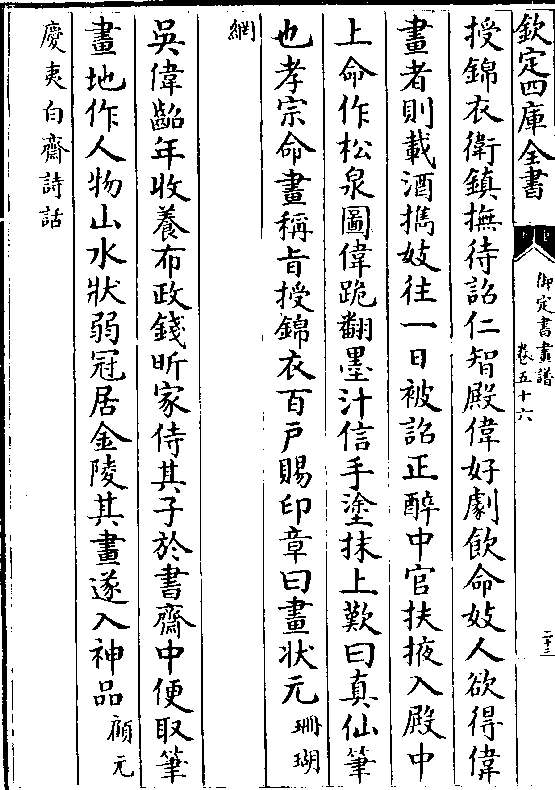 欽定四庫全書
御定書畫譜
卷五十六
二十三
授錦衣衛鎮撫待詔仁智殿偉好劇飲命妓人欲得偉
畫者則載酒擕妓往一日被詔正醉中官扶掖入殿中
上命作松泉圖偉跪翻墨汁信手塗抹上歎曰真仙筆
也孝宗命畫稱旨授錦衣百戶賜印章曰畫狀元珊瑚
網
吳偉齠年收養布政錢昕家侍其子於書齋中便取筆
畫地作人物山水狀弱冠居金陵其畫遂入神品顧元
慶夷白齋詩話